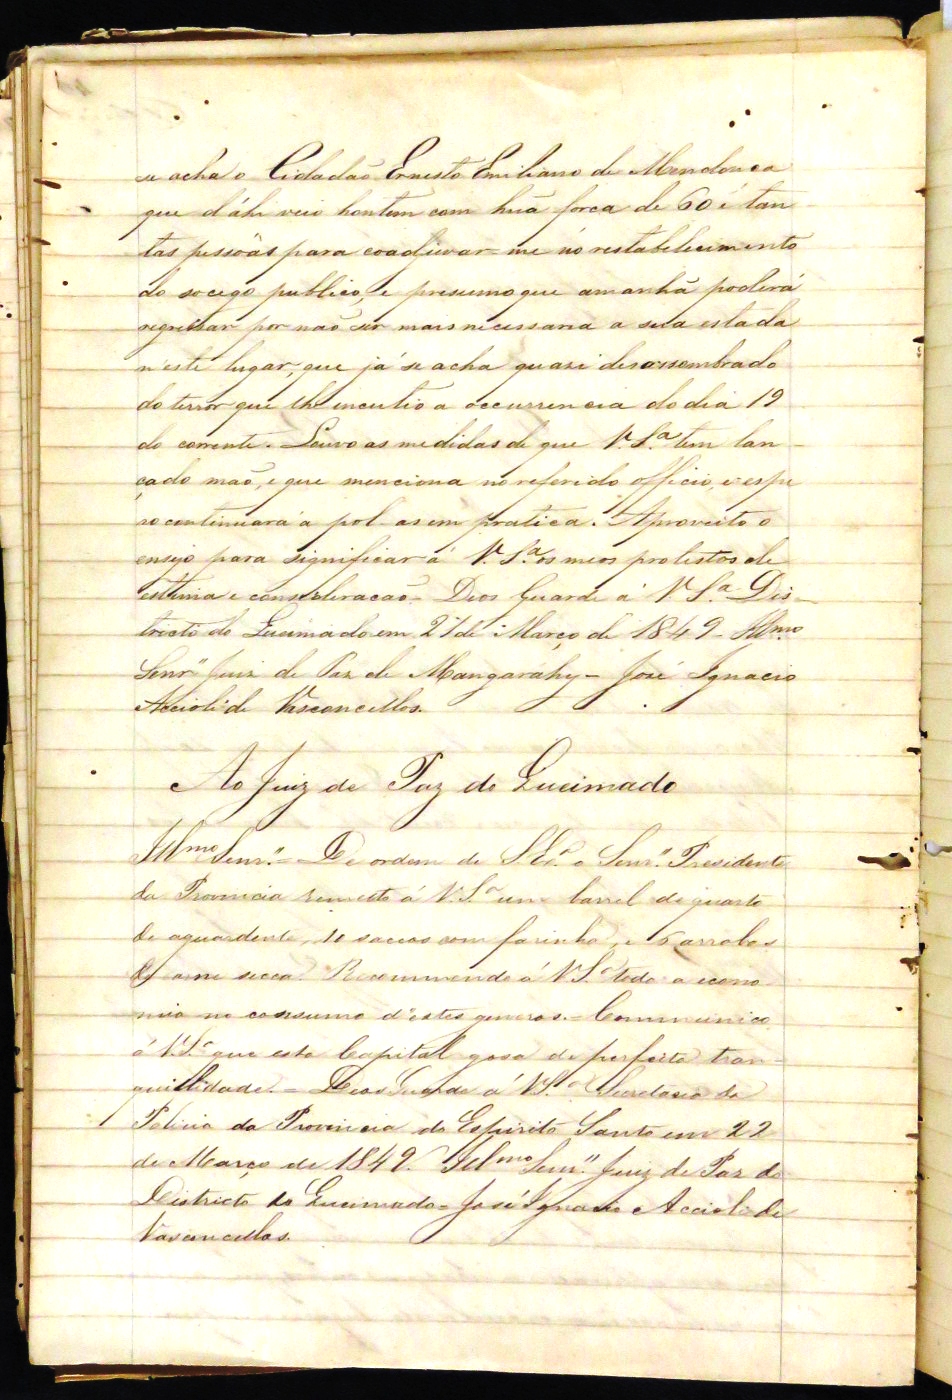 se acha o Cidadão Ernesto Emiliano de Mendonca
que d'áhi veio hontem com hũa forca de 60 é tan-
tas pessôas para coadjuvar-me nó restabelecimento
do socego publico, e presumo que amanhã poderá
regressar por não ser mais necessaria a sua estada
n'este lugar, que já se acha quasi desassombrado
do terror que lhe incutio a occurrencia do dia 19
do corrente. Louvo as medidas de que V. S.ª tem lan-
çado mão, e que menciona no referido officio, e espe
ro continuará a pol-as em pratica. Aproveito o
ensejo para significar á V. S.ª os meos protestos de
estima e consideracão - Deos Guarde á V. S.ª Dis-
tricto do Queimado em 21 de Março de 1849 - Illmo
Senr" Juiz de Paz de Mangarahy - José Ignacio
Accioli de Vasconcellos.
Ao Juiz de Paz do Queimado
Illmo Senr." = De ordem de S. Ex.ª o Senr." Presidente
da Provincia remetto á V. S.ª um barril de quarto
de aguardente, 10 saccos com farinha, e 6 arrobas
de carne secca. Recommendo á V. S.ª toda a econo
mia no consumo d'estes generos. = Communico
á V. S.ª que esta Capital gosa de perfeita tran-
quillidade. = Deos Guarde á V. S.ª Secretaria da
Policia da Provincia do Espirito Santo em 22
de Março de 1849. Illmo Senr." Juiz de Paz do
Districto do Queimado - José Ignacio Accioli de
Vasconcellos.